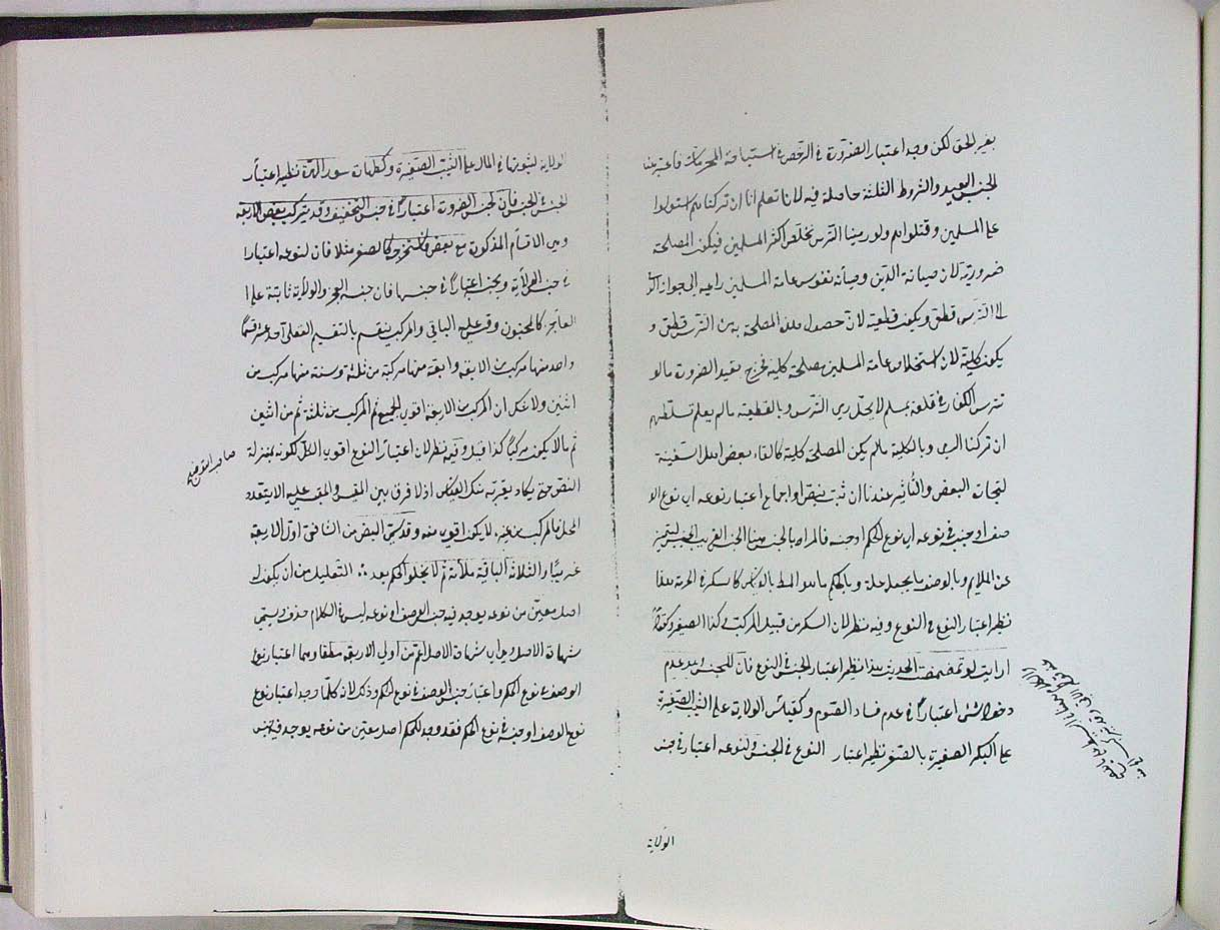 بغير الحق لكن وجد اعتبار الضرورة في الرخص في استباحة المحرمات فاعتبرنا
الجنس البعيد والشروط الثلثة حاصلة فيه لانا نعلم انا ان تركناهم استولوا
على المسلمين وقتلوهم ولو رمينا الترس تخلص اكثر المسلمين فيكون المصلحة
ضرورية لان صيانة الدين وصيانة نفوس عامة المسلمين داعية الى جواز الرمى
الى الترس قطعى ويكون قطعية لان حصول هذه المصلحة برمى الترس قطعى و
يكون كلية لان استخلاص عامة المسلمين مصلحة كلية فخرج بقيد الضرورة ما لو
تترس الكفار في قلعة بمسلم لا يحل رمي الترس وبالقطعية ما لم يعلم تسلطهم
ان تركنا الرمي وبالكلية ما لم يكن المصلحة كلية كالقاء بعض اهل السفينة
لنجات البعض والتأثير عندنا ان ثبت بنص او اجماع اعتبار نوعه اي نوع الو
صف او جنسه في نوعه اي نوع الحكم او جنسه فالمراد بالجنس هنا الجنس القريب ليتميز
عن الملايم وبالوصف ما يجعل علة وبالحكم ما هو المط بالقياس كالسكر في الحرمة هذا
نظير اعتبار النوع في النوع وفيه نظر لان السكر من قبيل المركب كذا الصغر وكقوله
ارايت لو تمضمضت الحديث هذا نظير اعتبار الجنس في النوع فان للجنس وهو عدم
دخول شئ اعتبارا في عدم فساد الصوم وكقياس الولاية على الثيب الصغيرة
على البكر الصغيرة بالصغر نظير اعتبار النوع في الجنس ولنوعه اعتبار في جنس
الولاية
الولاية لثبوتها في المال على الثيب الصغيرة وكطهارت سور الهرة نظير اعتبار
الجنس في الجنس فان لجنس الضرورة اعتبارا في جنس التخفيف وقد يتركب بعض الاربعة
وهي الاقسام المذكورة مع بعض فاستخرج كالصغر مثلا فان لنوعه اعتبارا
في جنس الولاية ولجنسه اعتبارا في جنسها فان جنسه العجز والولاية ثابتة على
العاجز كالمجنون وقس عليه الباقي والمركب ينقسم بالتقسيم العقلي احد عشر قسما
واحد منها مركب من الاربعة واربعة منها مركبة من ثلثة وستة منها مركب من
اثنين ولا شك ان المركب من الاربعة اقوى الجميع ثم المركب من ثلثة ثم من اثنين
ثم ما لا يكون مركبا كذا قيل وفيه نظر لان اعتبار النوع اقوى الكل لكونه بمنزلة
صاحب التوضيح
النص حتى يكاد يقر به منكر القياس اذ لا فرق بين المقيس والمقيس عليه الا بتعدد
المحل فالمركب من غيره لا يكون اقوى منه وقد سمى البعض من الشافعي اول الاربعة
غريبا والثلاثة الباقية ملائمة ثم لا يخلو الحكم بعد التعليل من ان يكون له
اصل معين من نوعه يوجد فيه جنس الوصف او نوعه ليس في الكلام حذف ويسمى
شهادة الاصل وهي اي شهادة الاصل اعم من اولي الاربعة مطلقا وهما اعتبار نوع
الوصف في نوع الحكم واعتبار جنس الوصف في نوع الحكم وذلك لانه كلما وجد اعتبار نوع
نوع الوصف او جنسه في نوع الحكم فقد وجد للحكم اصل معين من نوعه يوجد فيه جنس